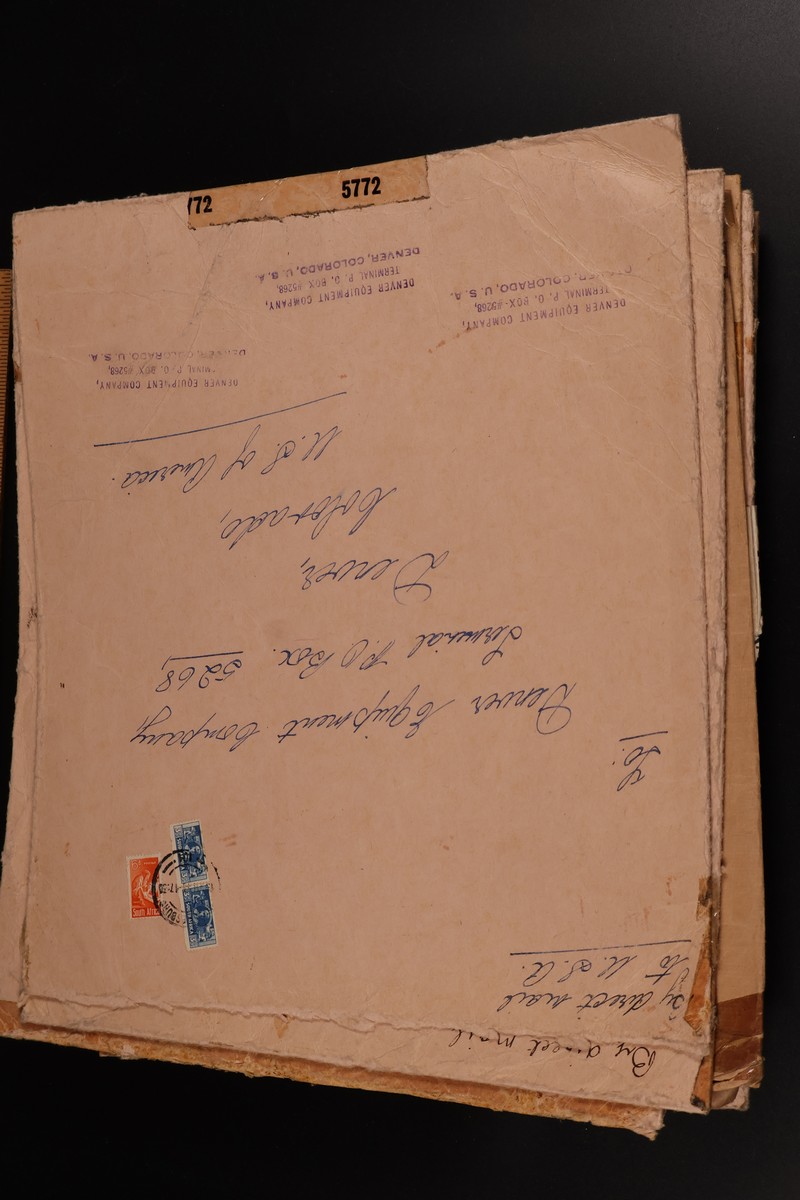 By direct mail
By direct mail
to U.S.A.
South Africa
To:
Denver Equipment Company,
Terminal P.O Box. 5268,
Denver,
Colorado,
U.S. of America.
DENVER EQUIPMENT COMPANY,
TERMINAL P. O. BOX #5268,
DENVER, COLORADO, U. S. A.
DENVER EQUIPMENT COMPANY,
TERMINAL P. O. BOX #5268,
DENVER, COLORADO, U. S. A.
DENVER EQUIPMENT COMPANY,
MINAL P. O. BOX #5268,
DENVER, COLORADO, U. S. A.
772
5772